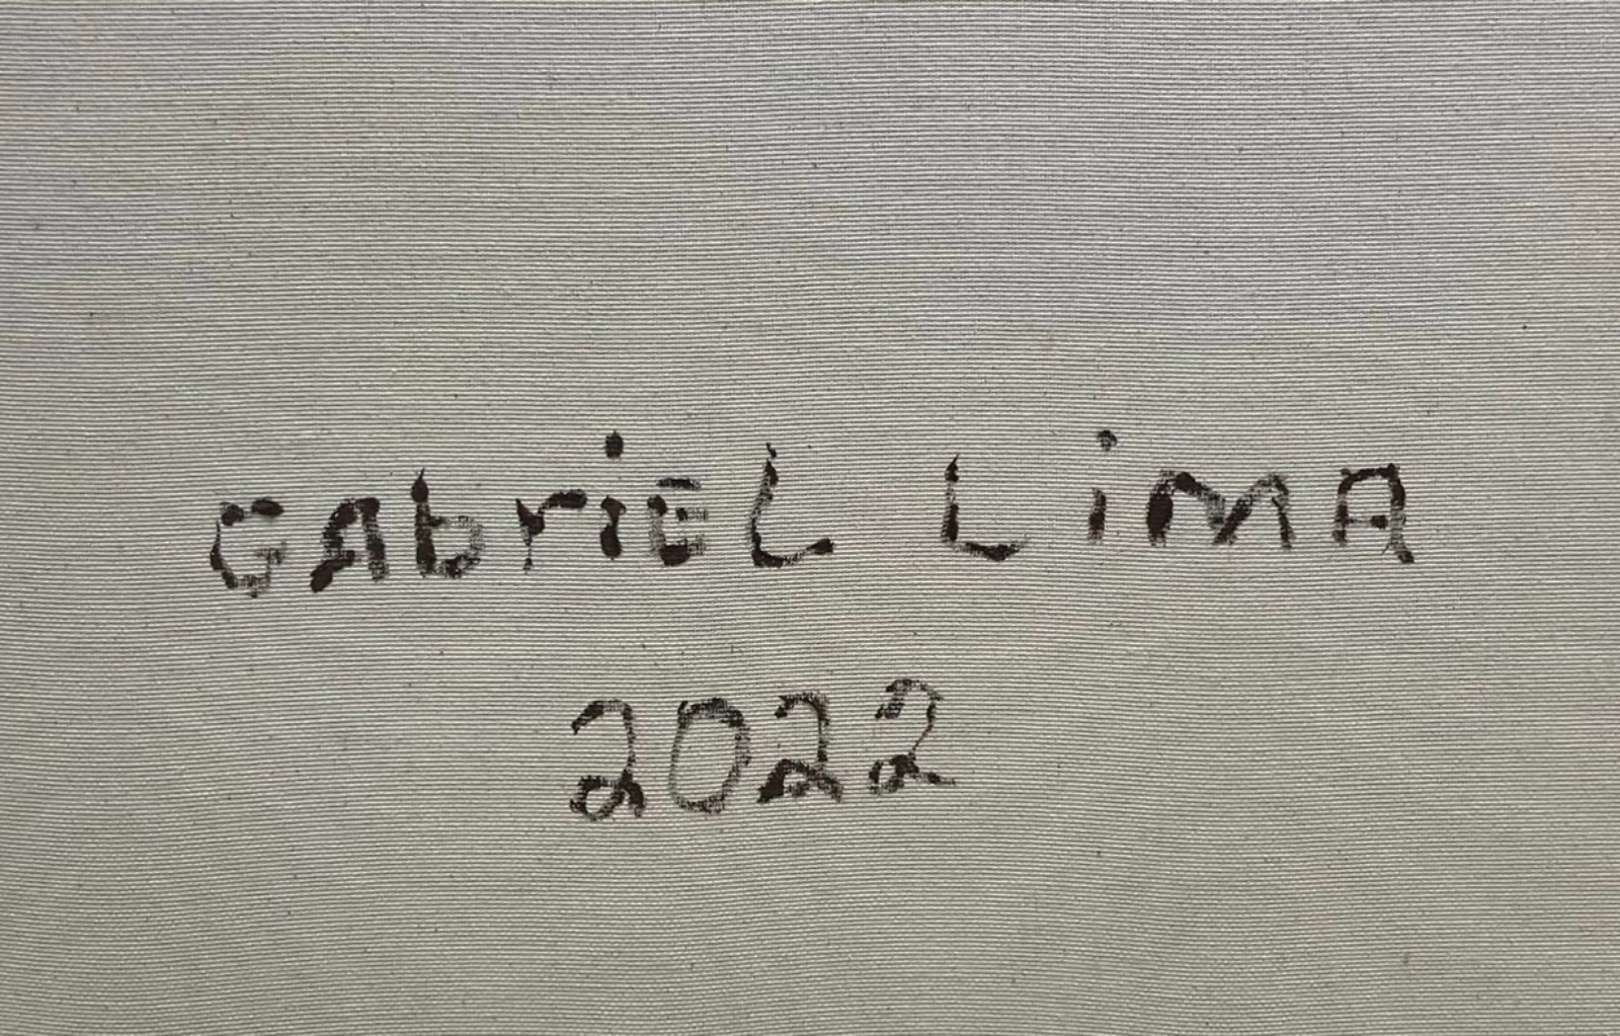 GAbriEL LiMA
2022